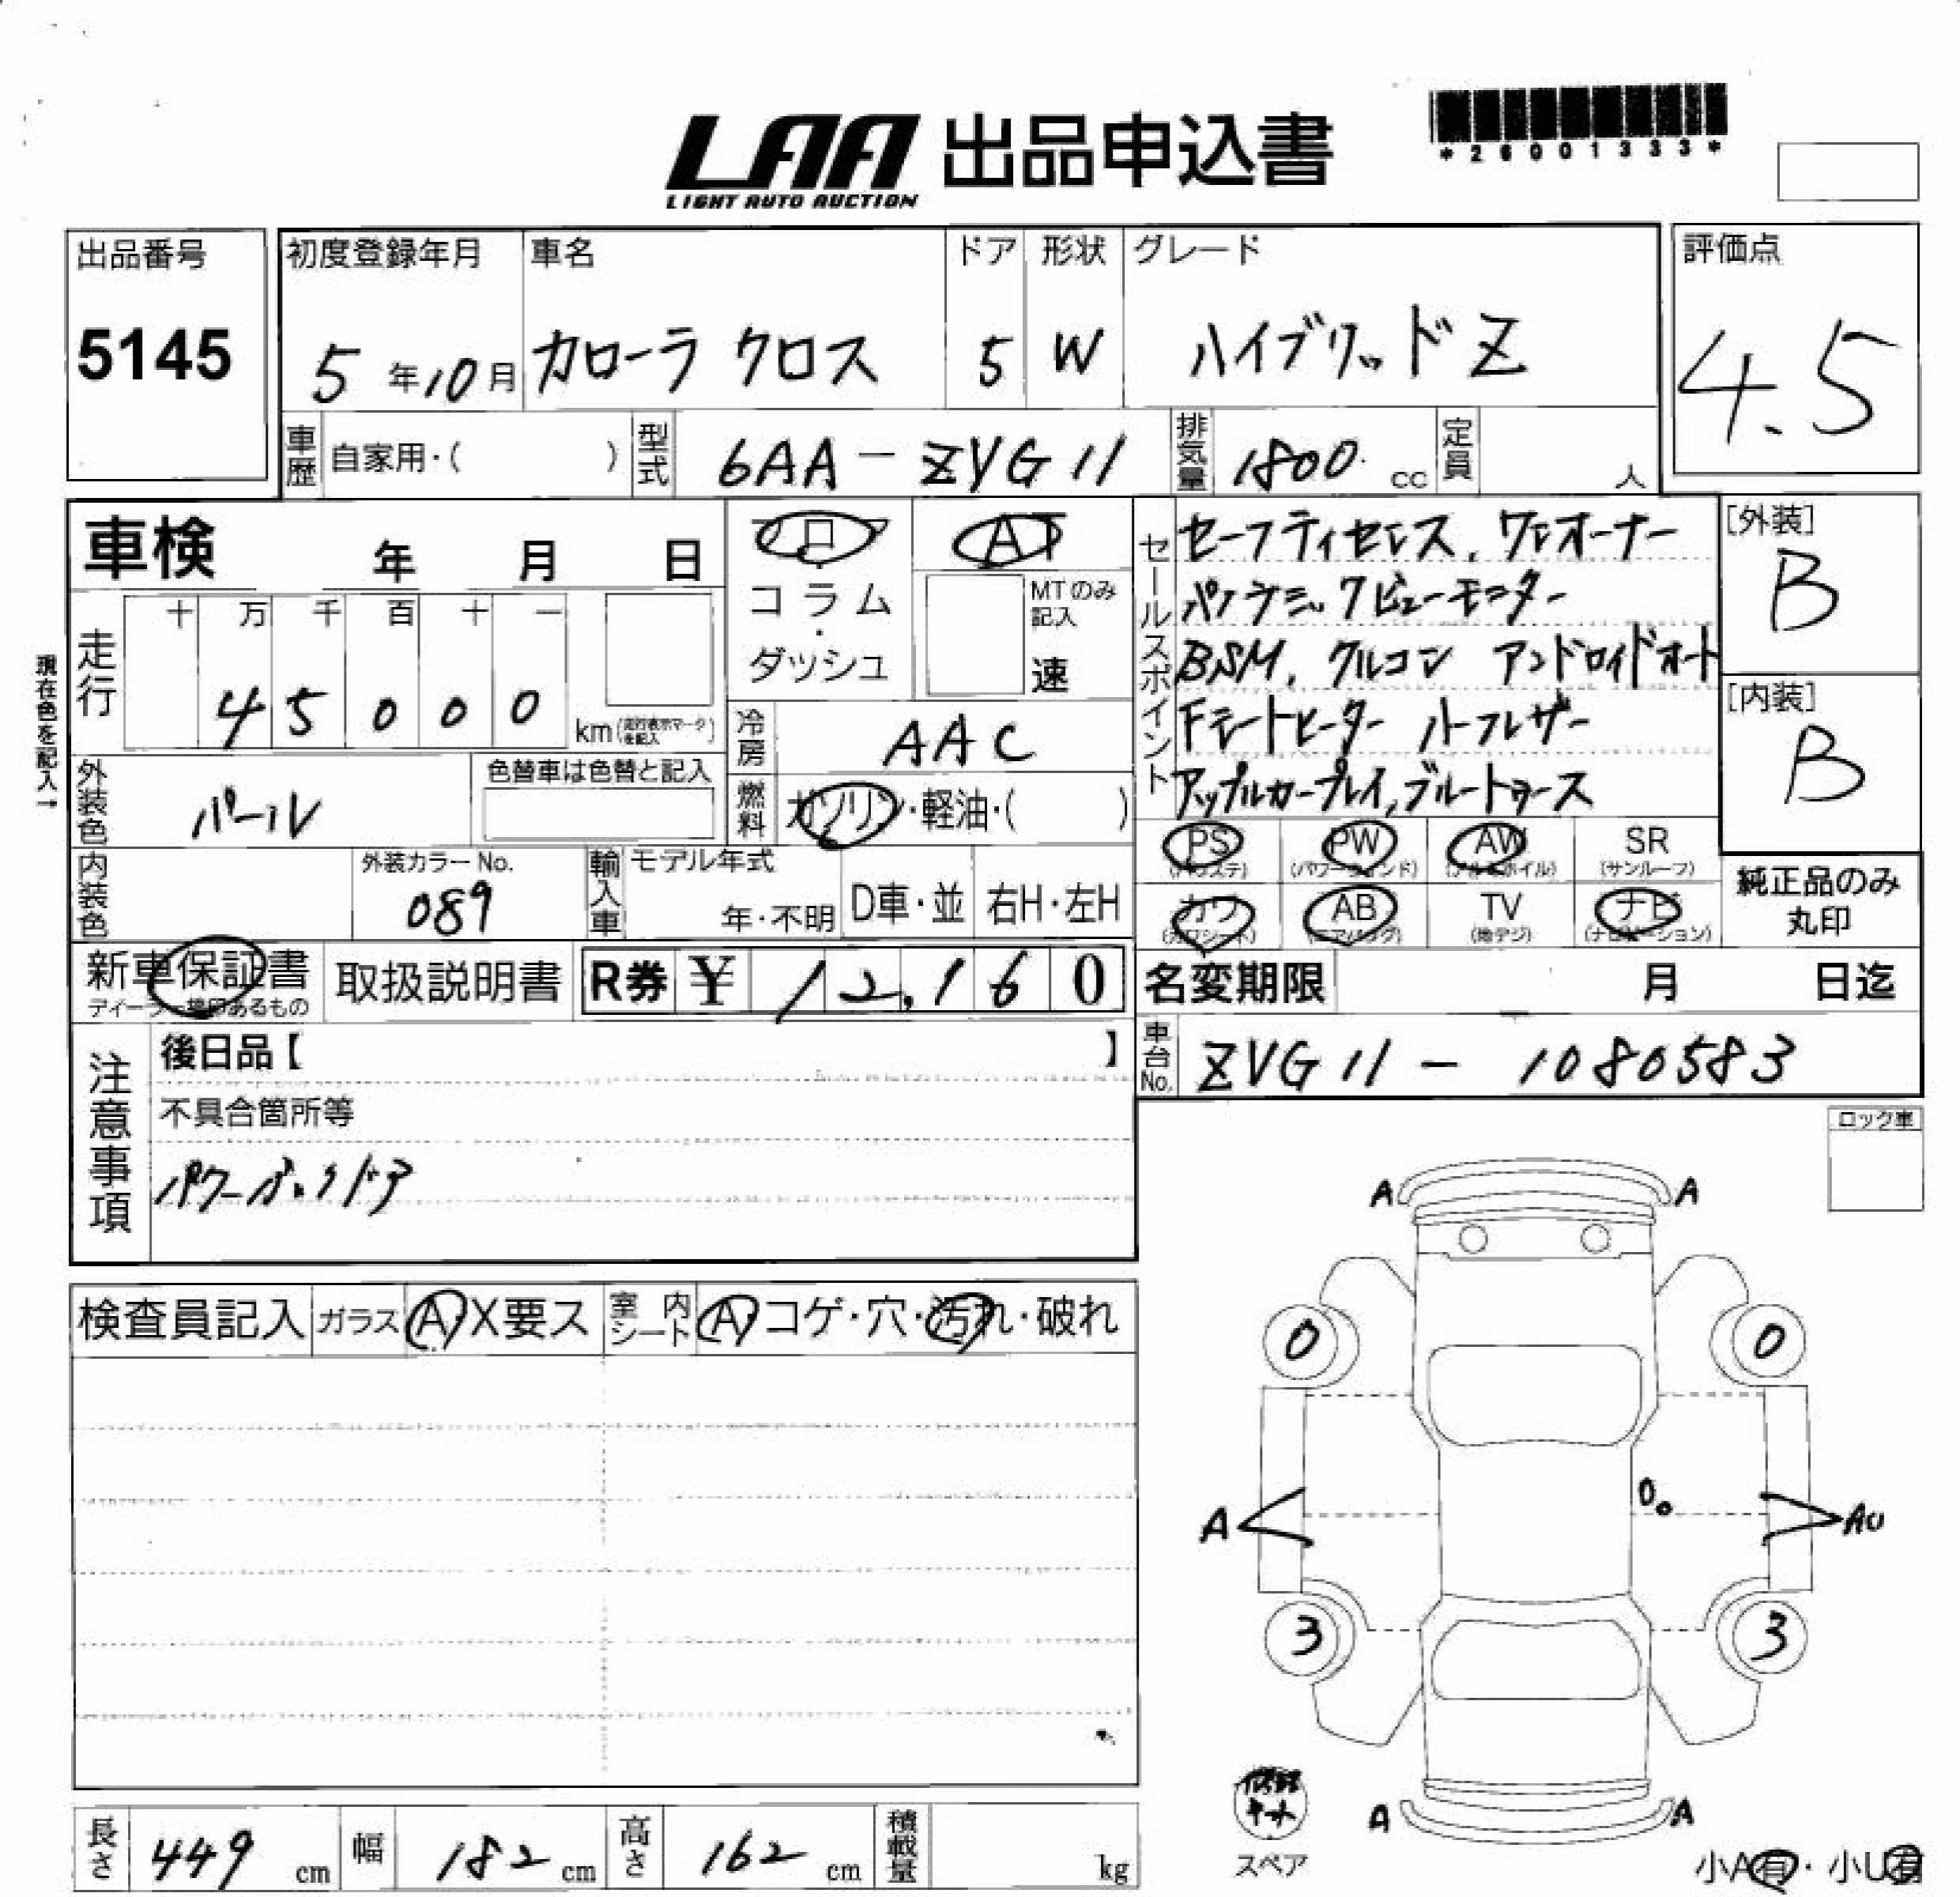 LAA 出品申込書
LIGHT AUTO AUCTION
*26001333*
出品番号 初度登録年月 車名 ドア 形状 グレード 評価点
5145 5年10月 カローラ クロス 5 W ハイブリッドZ 4.5
車歴 自家用・( ) 型式 6AA-ZVG11 排気量 1800 cc 定員 人
車検 年 月 日
フロア AT
コラム・ダッシュ
MTのみ記入 速
セールスポイント
セーフティセンス、ワンオーナー
パノラミックビューモニター
BSM、クルコン アンドロイドオート
Fシートヒーター ハーフレザー
アップルカープレイ,ブルートゥース
[外装]
B
[内装]
B
現在色を記入→
走行 十 万 千 百 十 一
45000 km(走行表示マークを記入)
冷房 AAC
外装色 パール 色替車は色替と記入
燃料 ガソリン・軽油・( )
PS PW AW SR
(パワステ) (パワーウィンド) (アルミホイル) (サンルーフ)
カワ AB TV ナビ
(カワシート) (エアバッグ) (地デジ) (ナビゲーション)
純正品のみ
丸印
内装色 外装カラーNo. 089 輸入車 モデル年式 年・不明 D車・並 右H・左H
新車保証書 取扱説明書 R券 ¥ 12,160
ディーラー捺印あるもの
名変期限 月 日迄
車台No. ZVG11-1080583
注意事項
後日品【 】
不具合箇所等
パワーバックドア
ロック車
A A
検査員記入 ガラス A X要ス 室内シート A コゲ・穴・汚れ・破れ
0 0
A AU
3 3
修理キット
スペア
A A
長さ 449 cm 幅 182 cm 高さ 162 cm 積載量 kg
小A有・小U有